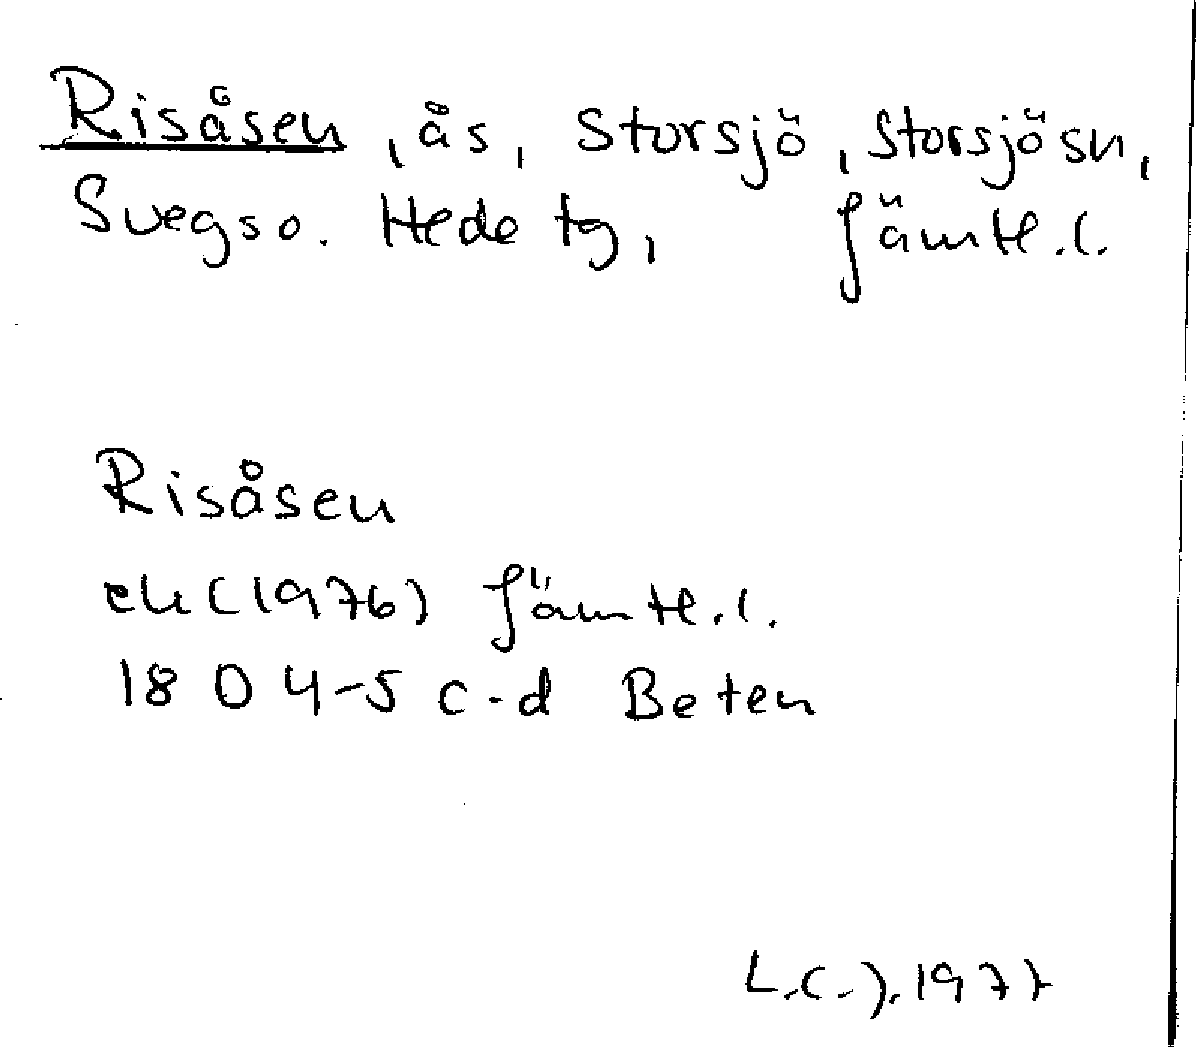 Risåsen, ås, Storsjö, Storsjösn,
Svegso. Hede tg, Jämtl.l.
Risåsen
ek (1976) Jämtl.l.
18 D 4-5 c-d Beten
L.C.J. 1977